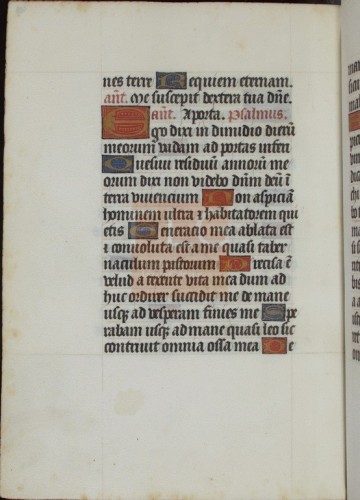 nes terre Requiem eternam.
añt. Me suscepit dextera tua dñe.
añt. A porta. Psalmus.
Ego dixi in dimidio dierū
meorum vadam ad portas inferi
Quesivi residuū annorū me
orum dixi non videbo dñm deū ī
terra viventium Non aspiciā
hominem ultra et habitatorem qui
etis Generatio mea ablata est
et convoluta est a me quasi taber
naculum pastorum Precisa ē
velud a texente vita mea dum ad
huc ordirer succidit me de mane
usq̨ ad vesperam finies me Spe
rabam usq̨ ad mane quasi leo sic
contrivit omnia ossa mea De